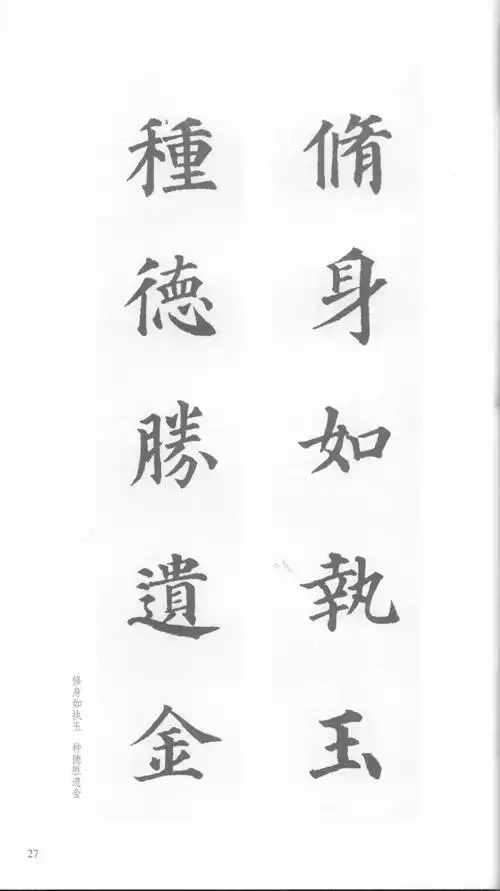 脩身如執玉
種德勝遺金
修身如执玉　种德胜遗金
27